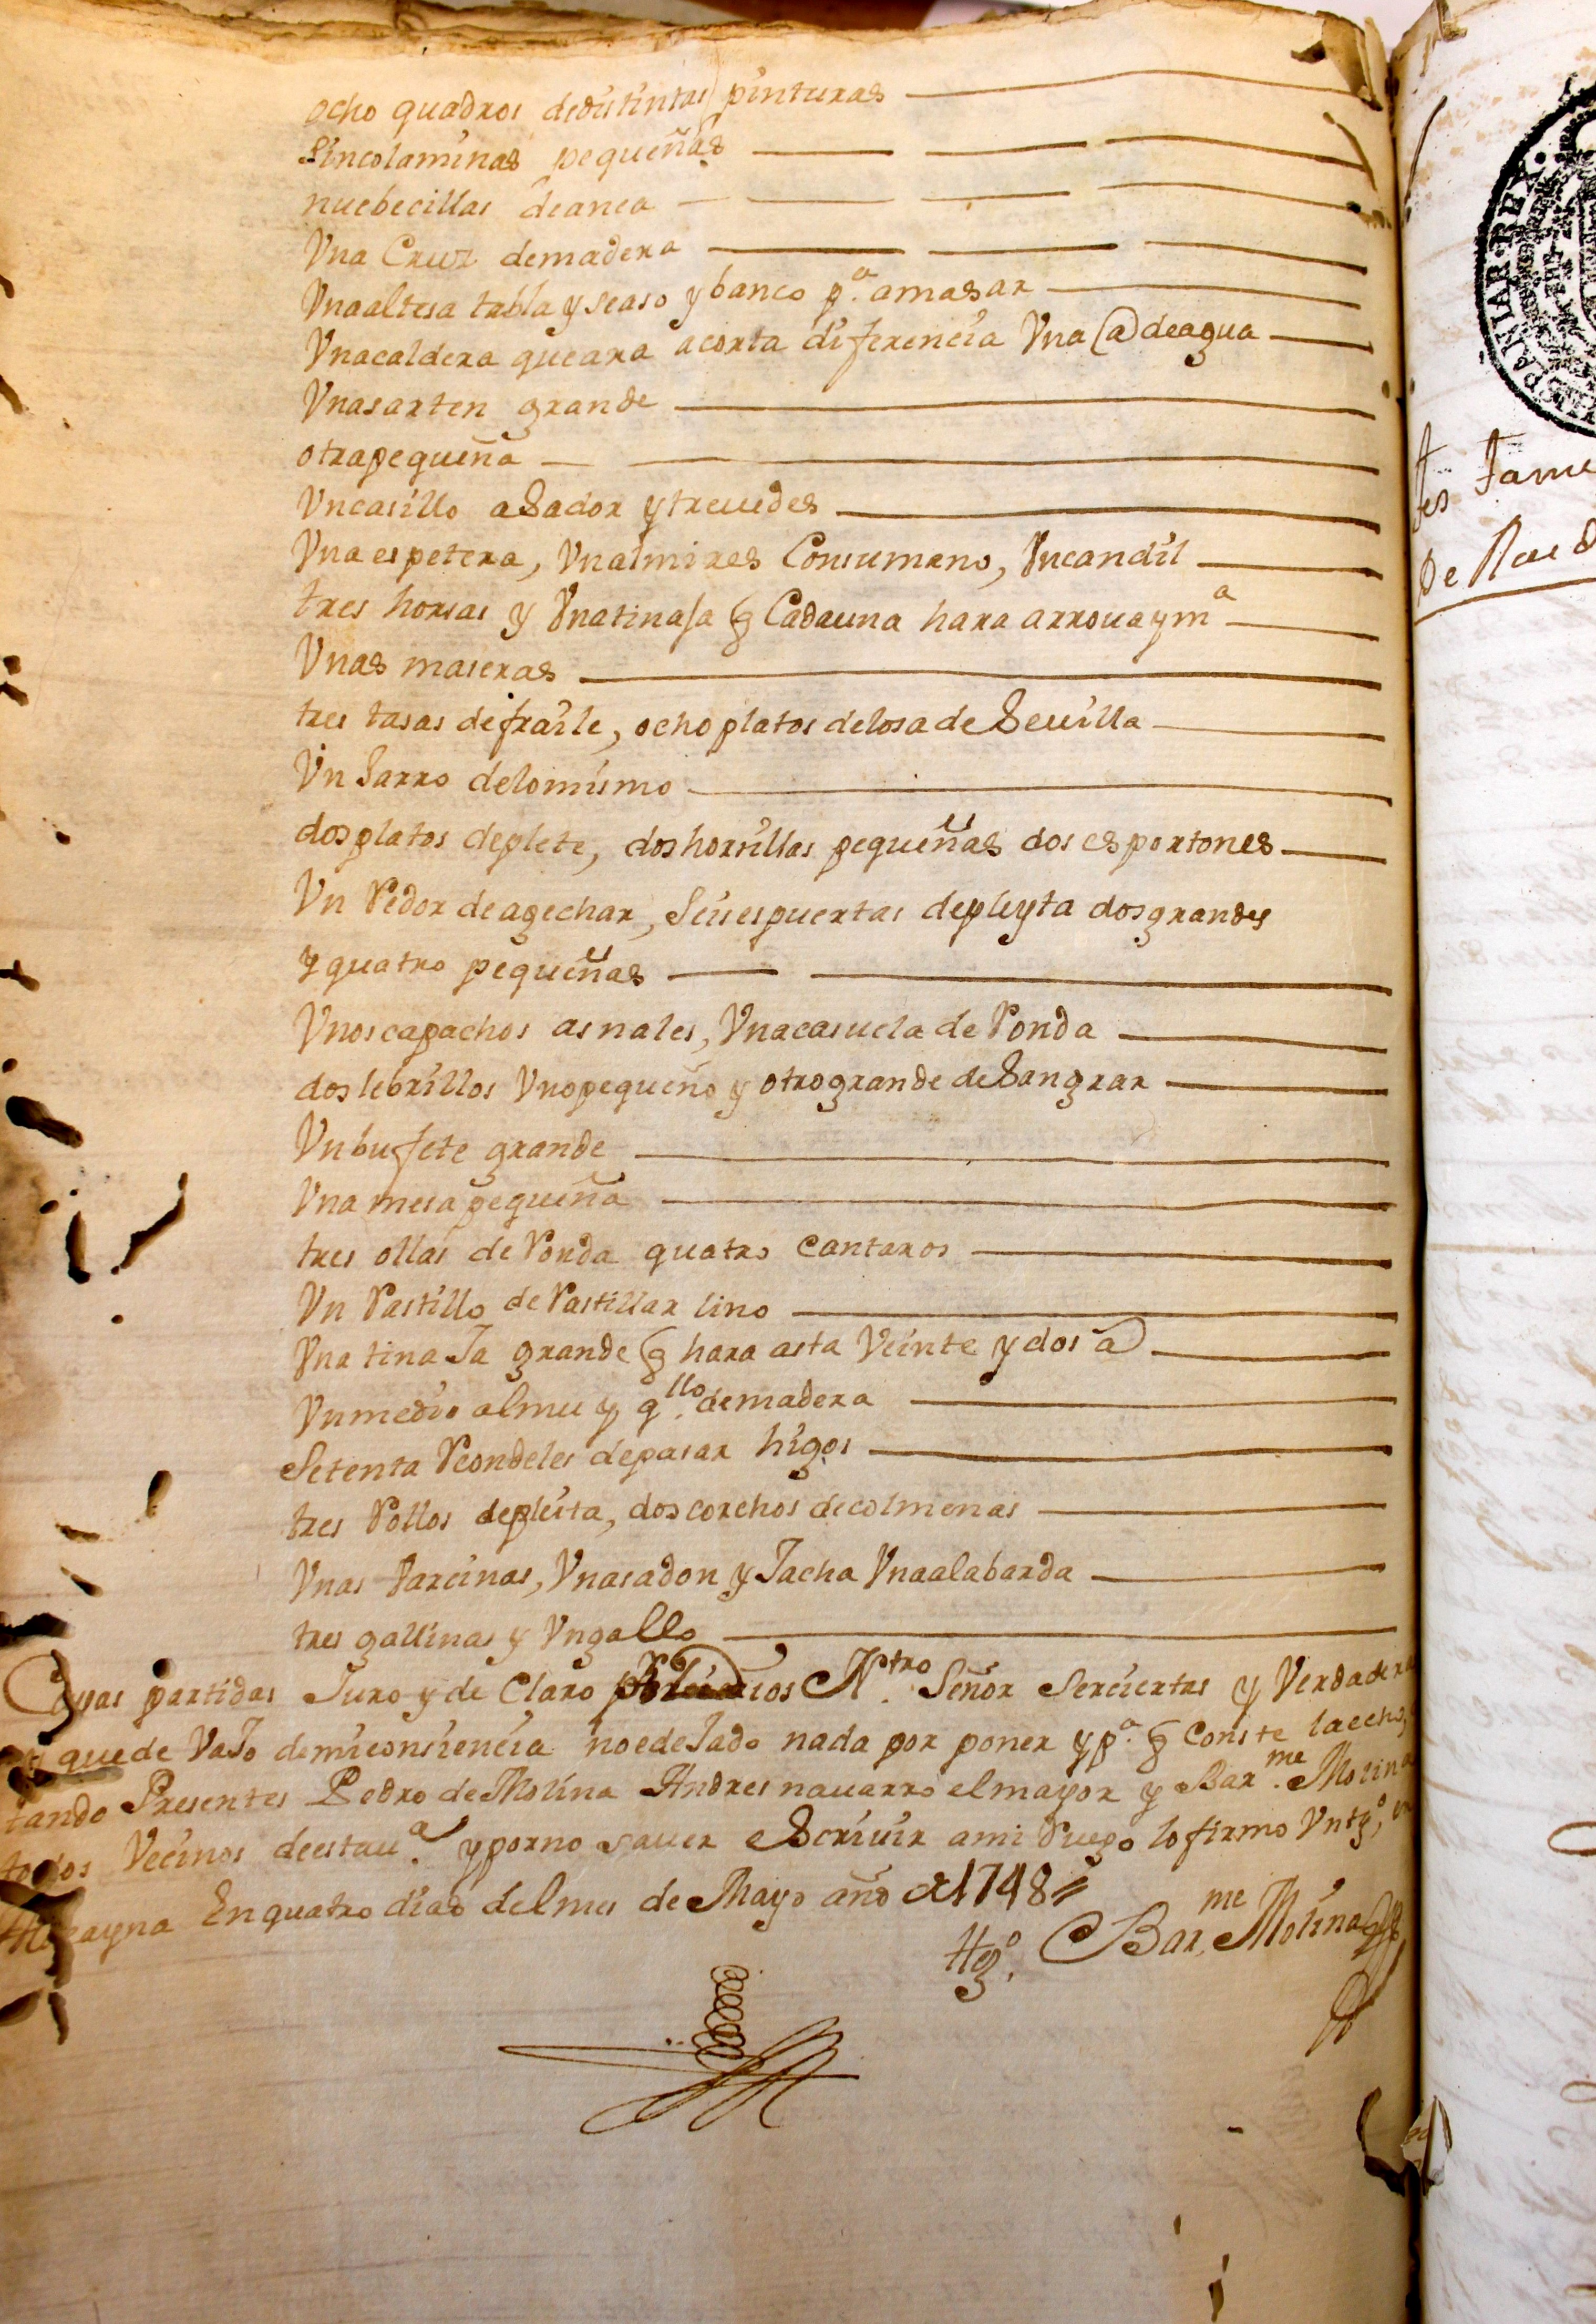 ocho quadros dedistintas pinturas
Sincolaminas pequeñas
nuebecillas deanea
Vna Cruz demadera
Vnaaltesa tabla y seaso y banco p.ª amasar
Vnacaldera queara acorta diferencia Vna @ deagua
Vnasarten grande
otrapequeña
Vncasillo aSador ytreuedes
Vna espetera, Vnalmires Consumano, Vncandil
tres horsas y Vnatinaja q Cadauna hara arrouaymª
Vnas maseras
tres tasas defraile, ocho platos delosa de Seuilla
Vn Jarro delomismo
dosplatos deplete, doshorsillas pequeñas dos esportones
Vn Redor deagechar, Seisespuertas depleyta dosgrandes
y quatro pequeñas
Vnoscapachos asnales, Vnacasuela de Ronda
doslebrillos Vnopequeño y otrogrande deSangrar
Vnbufete grande
Vna mesa pequeña
tres ollas de Ronda quatro Cantaros
Vn Rastillo de Rastillar lino
Vna tinaJa grande q hara asta Veinte y dos @
Vnmedio almu y q.llo demadera
Setenta Reondeles depasar higos
tres Rollos depleita, doscorchos decolmenas
Vnas barcinas, Vnasadon y Jacha Vnaalabarda
tres gallinas y Vngallo
Cuyas partidas Juro y de Claro Dios N.tro Señor Serciertas y Verdadera
quede VaJo demiconsiencia noedeJado nada por poner yp.ª q Conste laecho,
tando Presentes Pedro de Molina Andres nauarro elmayor y Bar.me Molina
todos Vecinos deestau.ª yporno sauer eScriuir ami Ruego lofirmo Vntgº,
En quatro dias delmes de Mayo año d 1748
tgº. Bar.me Molina
tes Jame
De Rued